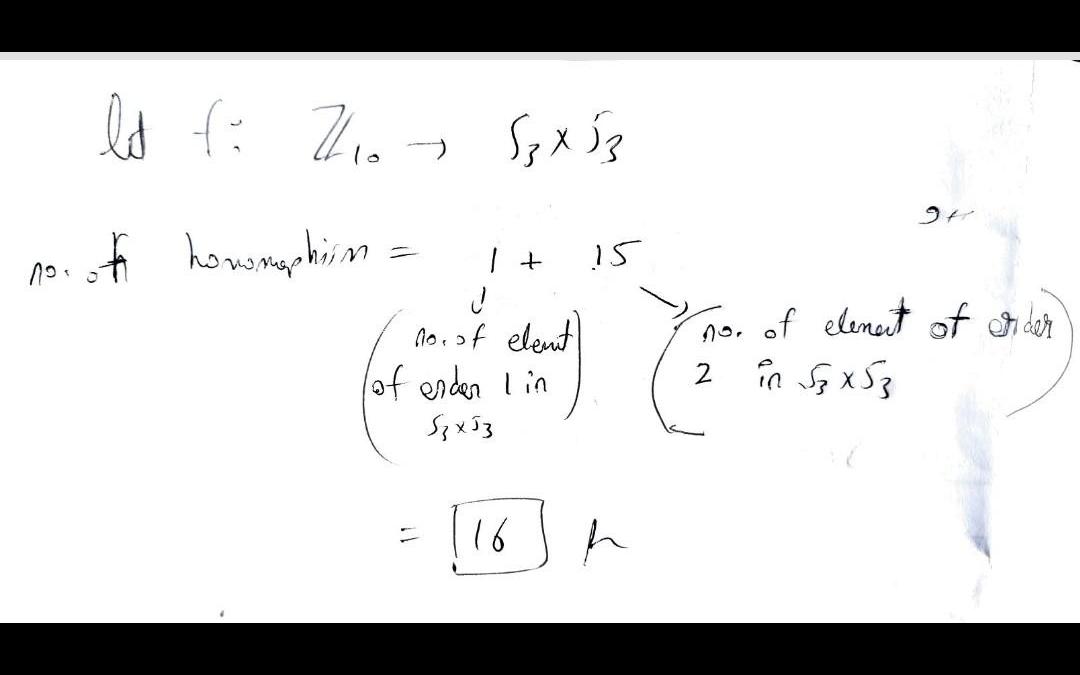 let f: ℤ₁₀ → S₃ × S₃
no. of homomophism = 1 + 15
(no. of elemt of order 1 in S₃ × S₃)
(no. of element of order 2 in S₃ × S₃)
= 16